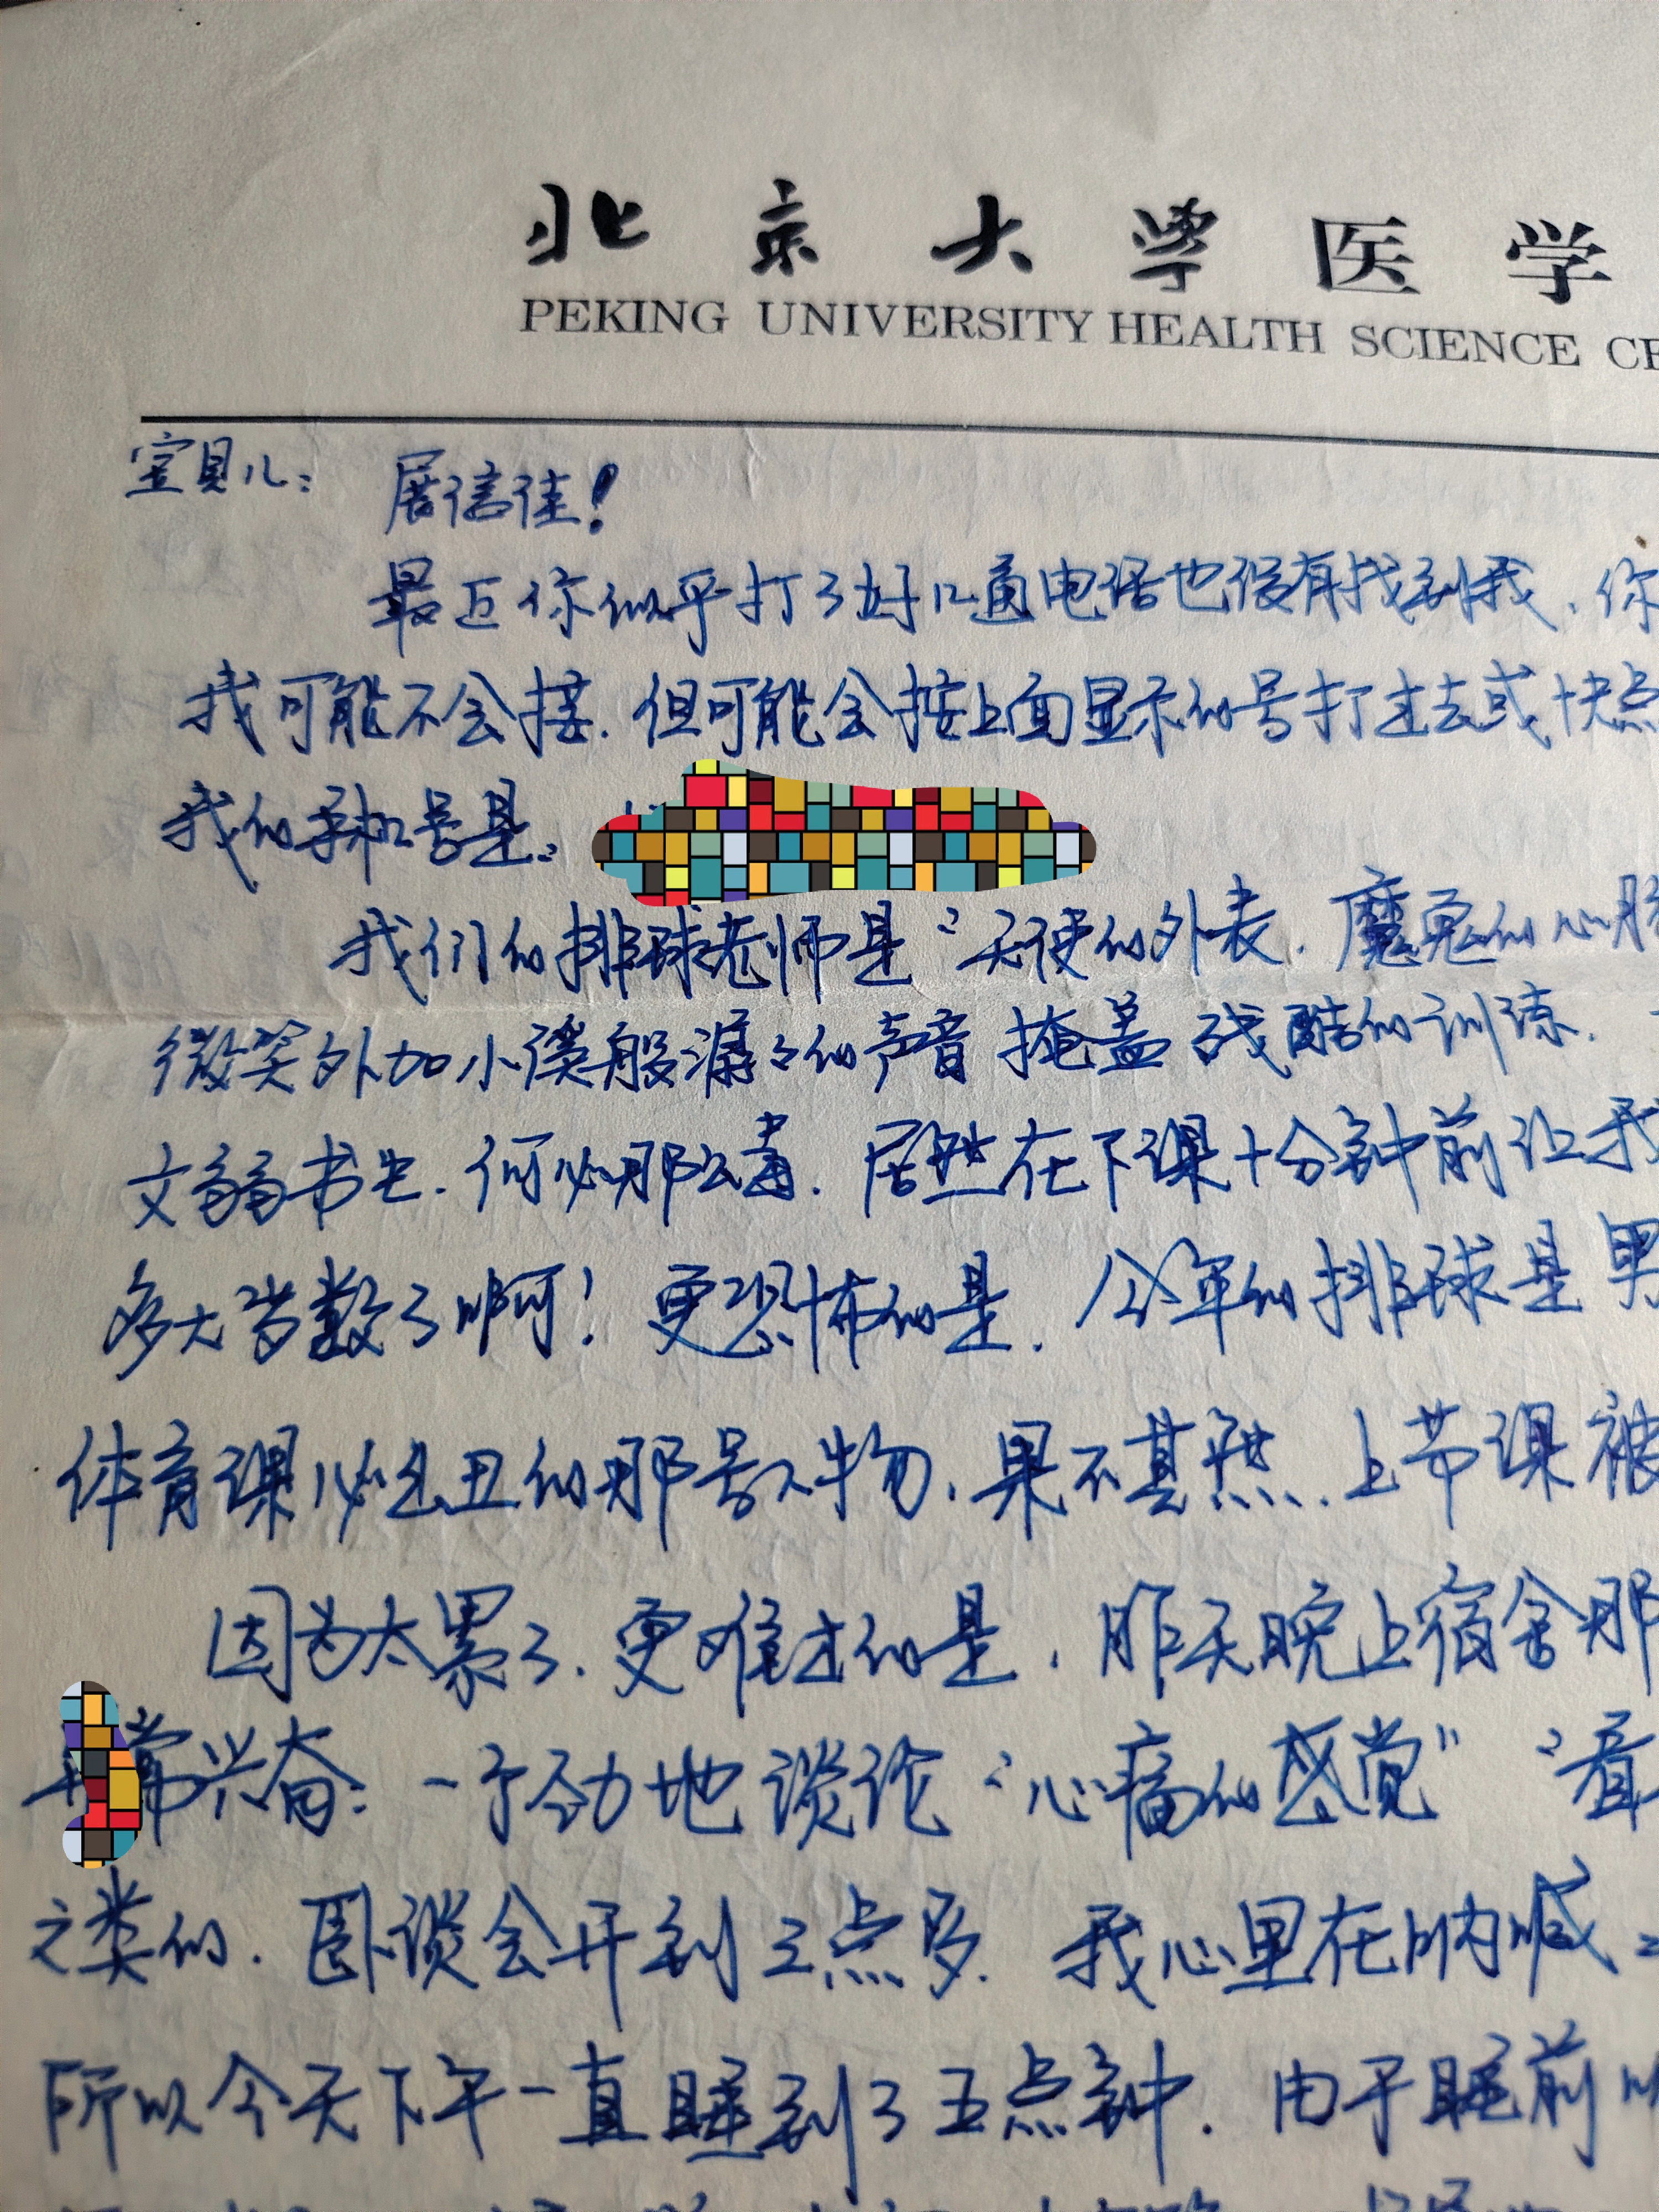 北京大学医学
PEKING UNIVERSITY HEALTH SCIENCE CE
宝贝儿：展信佳！
最近你似乎打了好几通电话也没有找到我，你
我可能不会接，但可能会按上面显示的号打过去或快点
我的手机号是：
我们的排球老师是“天使的外表，魔鬼的心肠
微笑外加小溪般潺潺的声音掩盖残酷的训练，
文弱书生，何必那么毒，居然在下课十分钟前让我
多大岁数了啊！更恐怖的是，今年的排球是男
体育课必出丑的那号人物，果不其然，上节课被
因为太累了，更难过的是，昨天晚上宿舍那
常兴奋：一个劲地谈论“心痛的感觉”“看
之类的，卧谈会开到三点多，我心里在呐喊：
所以今天下午一直睡到了五点钟，由于睡前